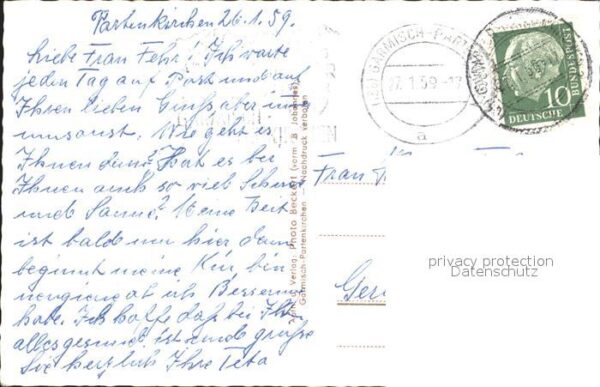 Partenkirchen 26.1.59.
Liebe Frau Fehr! Ich warte
jeden Tag auf Post und auf
Ihren lieben Gruß aber
umsonst. Wie geht es
Ihnen denn? Hat es bei
Ihnen auch so viel Schnee
und Sonne? Meine Zeit
ist bald um hier dann
beginnt meine Kur bin
neugierig ob ich Besserung
habe. Ich hoffe daß bei Ihnen
alles gesund ist und grüße
Sie herzlich Ihre Teta
Verlag: Photo Becker (vorm. B. Johannes)
Garmisch-Partenkirchen — Nachdruck verboten
GARMISCH-PARTENKIRCHEN
27.1.59.-17
a
DEUTSCHE
BUNDESPOST
10
Frau
Ger
privacy protection
Datenschutz